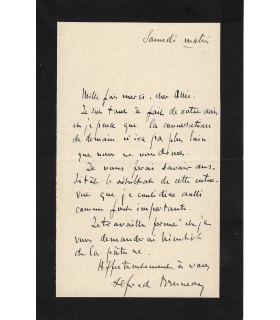 Samedi matin
Mille fois merci, cher ami.
Je suis tout à fait de votre avis
et je pense que la conversation
de demain n'ira pas plus loin
que nous ne voudrons.
Je vous ferai savoir aus-
sitôt le résultat de cette entre-
vue que je considère aussi
comme fort importante.
je
vous demanderai bientôt
de la
Affectueusement à vous
Alfred Bruneau